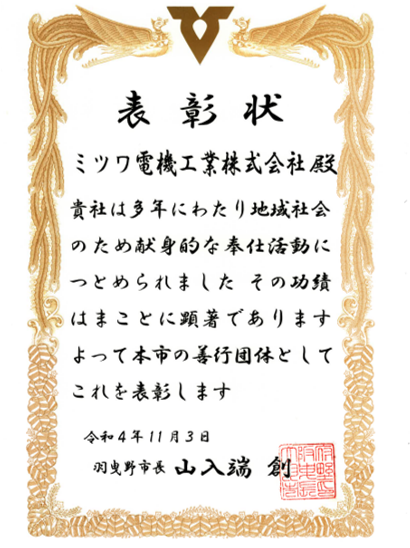 表彰状
ミツワ電機工業株式会社 殿
貴社は多年にわたり地域社会
のため献身的な奉仕活動に
つとめられました その功績
はまことに顕著であります
よって本市の善行団体として
これを表彰します
令和4年11月3日
羽曳野市長 山入端 創